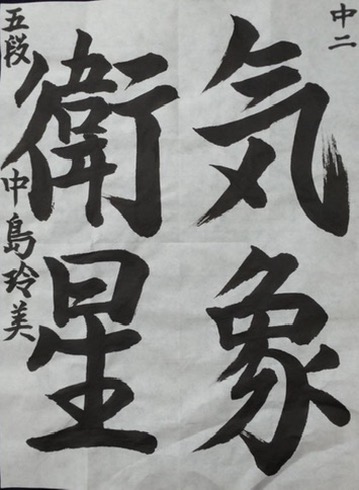 中二
気象
衛星
五段 中島玲美